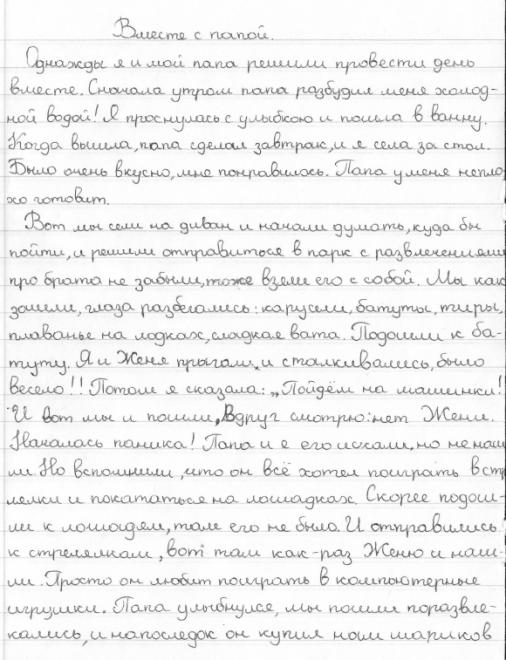 Вместе с папой.
Однажды я и мой папа решили провести день
вместе. Сначала утром папа разбудил меня холод-
ной водой! Я проснулась с улыбкою и пошла в ванну.
Когда вышла, папа сделал завтрак, и я села за стол.
Было очень вкусно, мне понравилось. Папа у меня непло
хо готовит.
Вот мы сели на диван и начали думать, куда бы
пойти, и решили отправиться в парк с развлечениями
про брата не забыли, тоже взели его с собой. Мы как
зашли, глаза разбегались: карусели, батуты, тиры,
плаванье на лодках, сладкая вата. Подошли к ба-
туту. Я и Женя прыгали и сталкивались, было
весело!! Потом я сказала: „Пойдём на машинки!
И вот мы и пошли, Вдруг смотрю: нет Жени.
Началась паника! Папа и я его искали, но не наш
ли. Но вспомнили, что он всё хотел поиграть в стр
лелки и покататься на лошадках. Скорее подош-
ли к лошадям, там его не было. И отправились
к стрелялкам, вот там как-раз Женю и наш-
ли. Просто он любит поиграть в компьютерные
игрушки. Папа улыбнулся, мы пошли поразвле-
кались, и напоследок он купил нам шариков